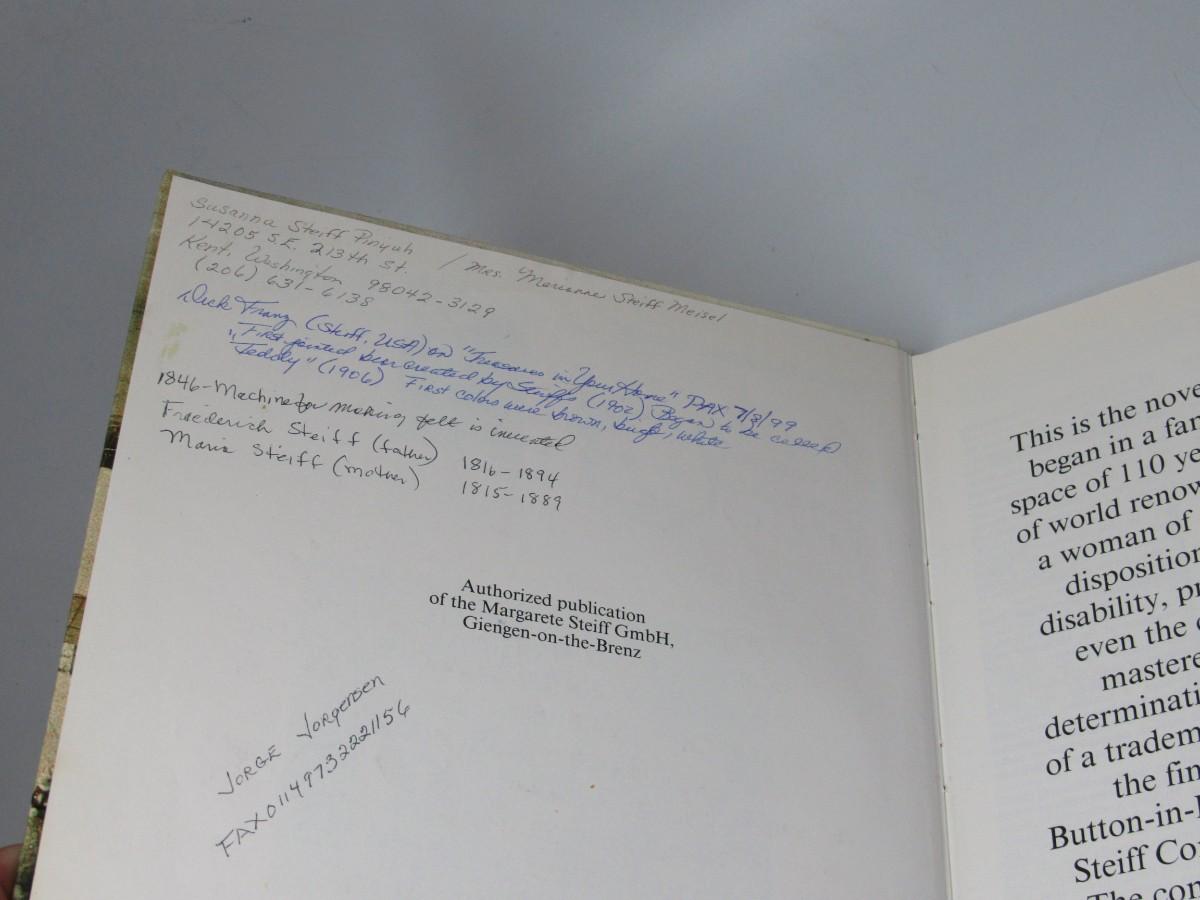 Susanna Steiff Pinyuh / Mrs. Marianne Steiff Meisel
14205 S.E. 213th St.
Kent, Washington 98042-3129
(206) 631-6138
Dick Franz (Steiff, USA) on "Treasures in Your Home" PAX 7/8/99
"First jointed bear created by Steiff (1902) Began to be called
"Teddy" (1906) First colors were brown, beige, white
1846-Machine for making felt is invented
Friederich Steiff (father) 1816-1894
Maria Steiff (mother) 1815-1889
Authorized publication
of the Margarete Steiff GmbH,
Giengen-on-the-Brenz
JORGE JORGENSEN
FAX011497322 21156
This is the nove
began in a fan
space of 110 ye
of world renow
a woman of
disposition
disability, pr
even the
mastere
determinati
of a tradem
the fin
Button-in-
Steiff Co
The con